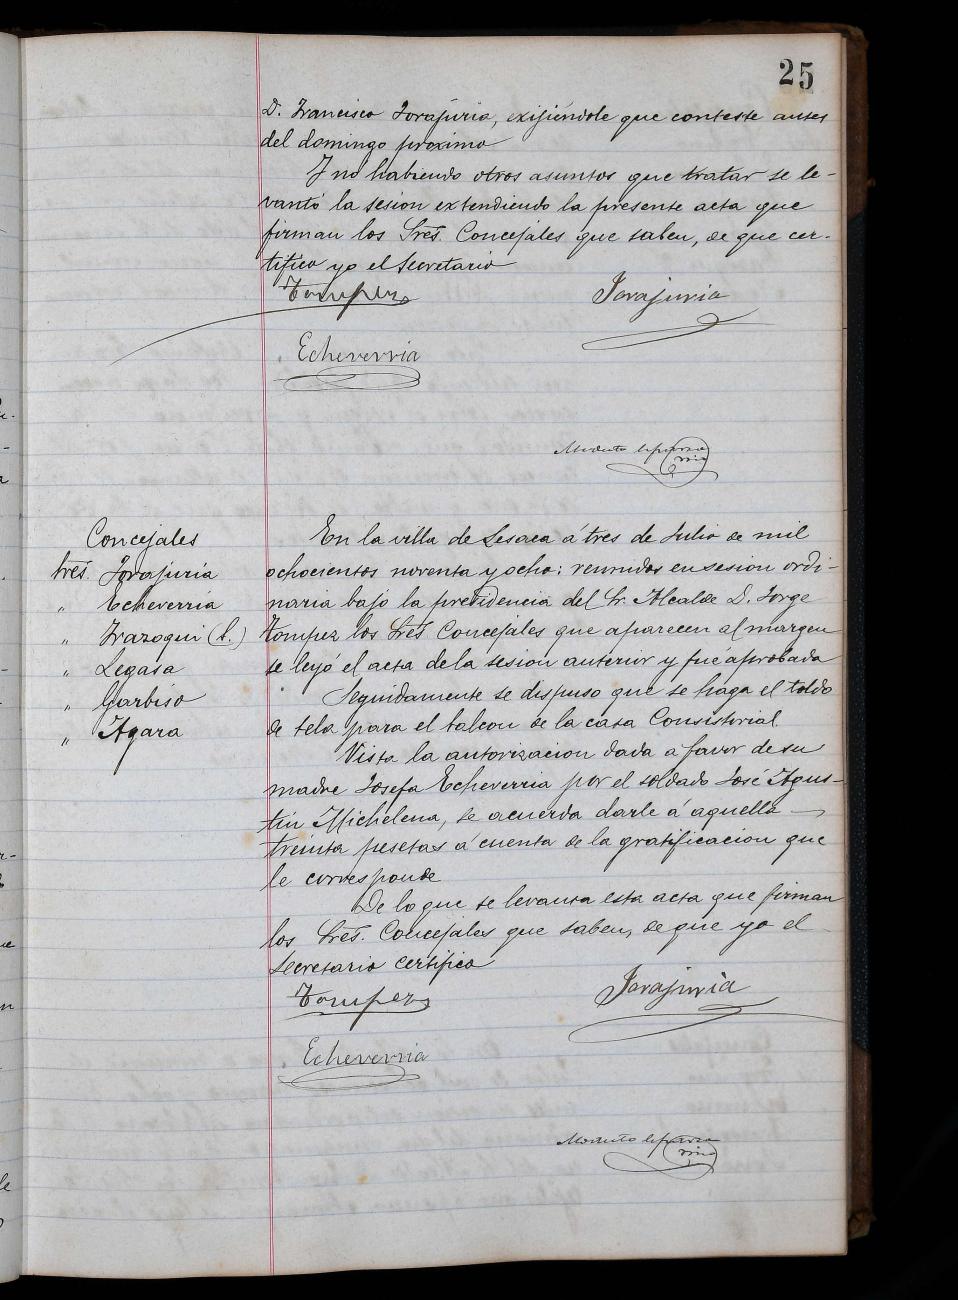 25
D. Francisco Jorajuria, exijiéndole que conteste antes
del domingo próximo
Y no habiendo otros asuntos que tratar se le-
vantó la sesion extendiendo la presente acta que
firman los Sres. Concejales que saben, de que cer-
tifico yo el Secretario
Tompes
Jorajuria
Echeverria
Modesto
Concejales
Sres. Jorajuria
" Echeverria
" Irazoqui (b.)
" Legasa
" Garbiso
" Agara
En la villa de Lesaca á tres de Julio de mil
ochocientos noventa y ocho: reunidos en sesion ordi-
naria bajo la presidencia del Sr. Alcalde D. Jorge
Tompes los Sres. Concejales que aparecen al margen
se leyó el acta de la sesion anterior y fué aprobada
Seguidamente se dispuso que se haga el toldo
de tela para el balcon de la casa Consistorial
Vista la autorizacion dada a favor de su
madre Josefa Echeverria por el soldado José Agus-
tin Michelena, se acuerda darle á aquella
treinta pesetas á cuenta de la gratificacion que
le corresponde
De lo que se levanta esta acta que firman
los Sres. Concejales que saben, de que yo el
Secretario certifico
Tompes
Jorajuria
Echeverria
Modesto